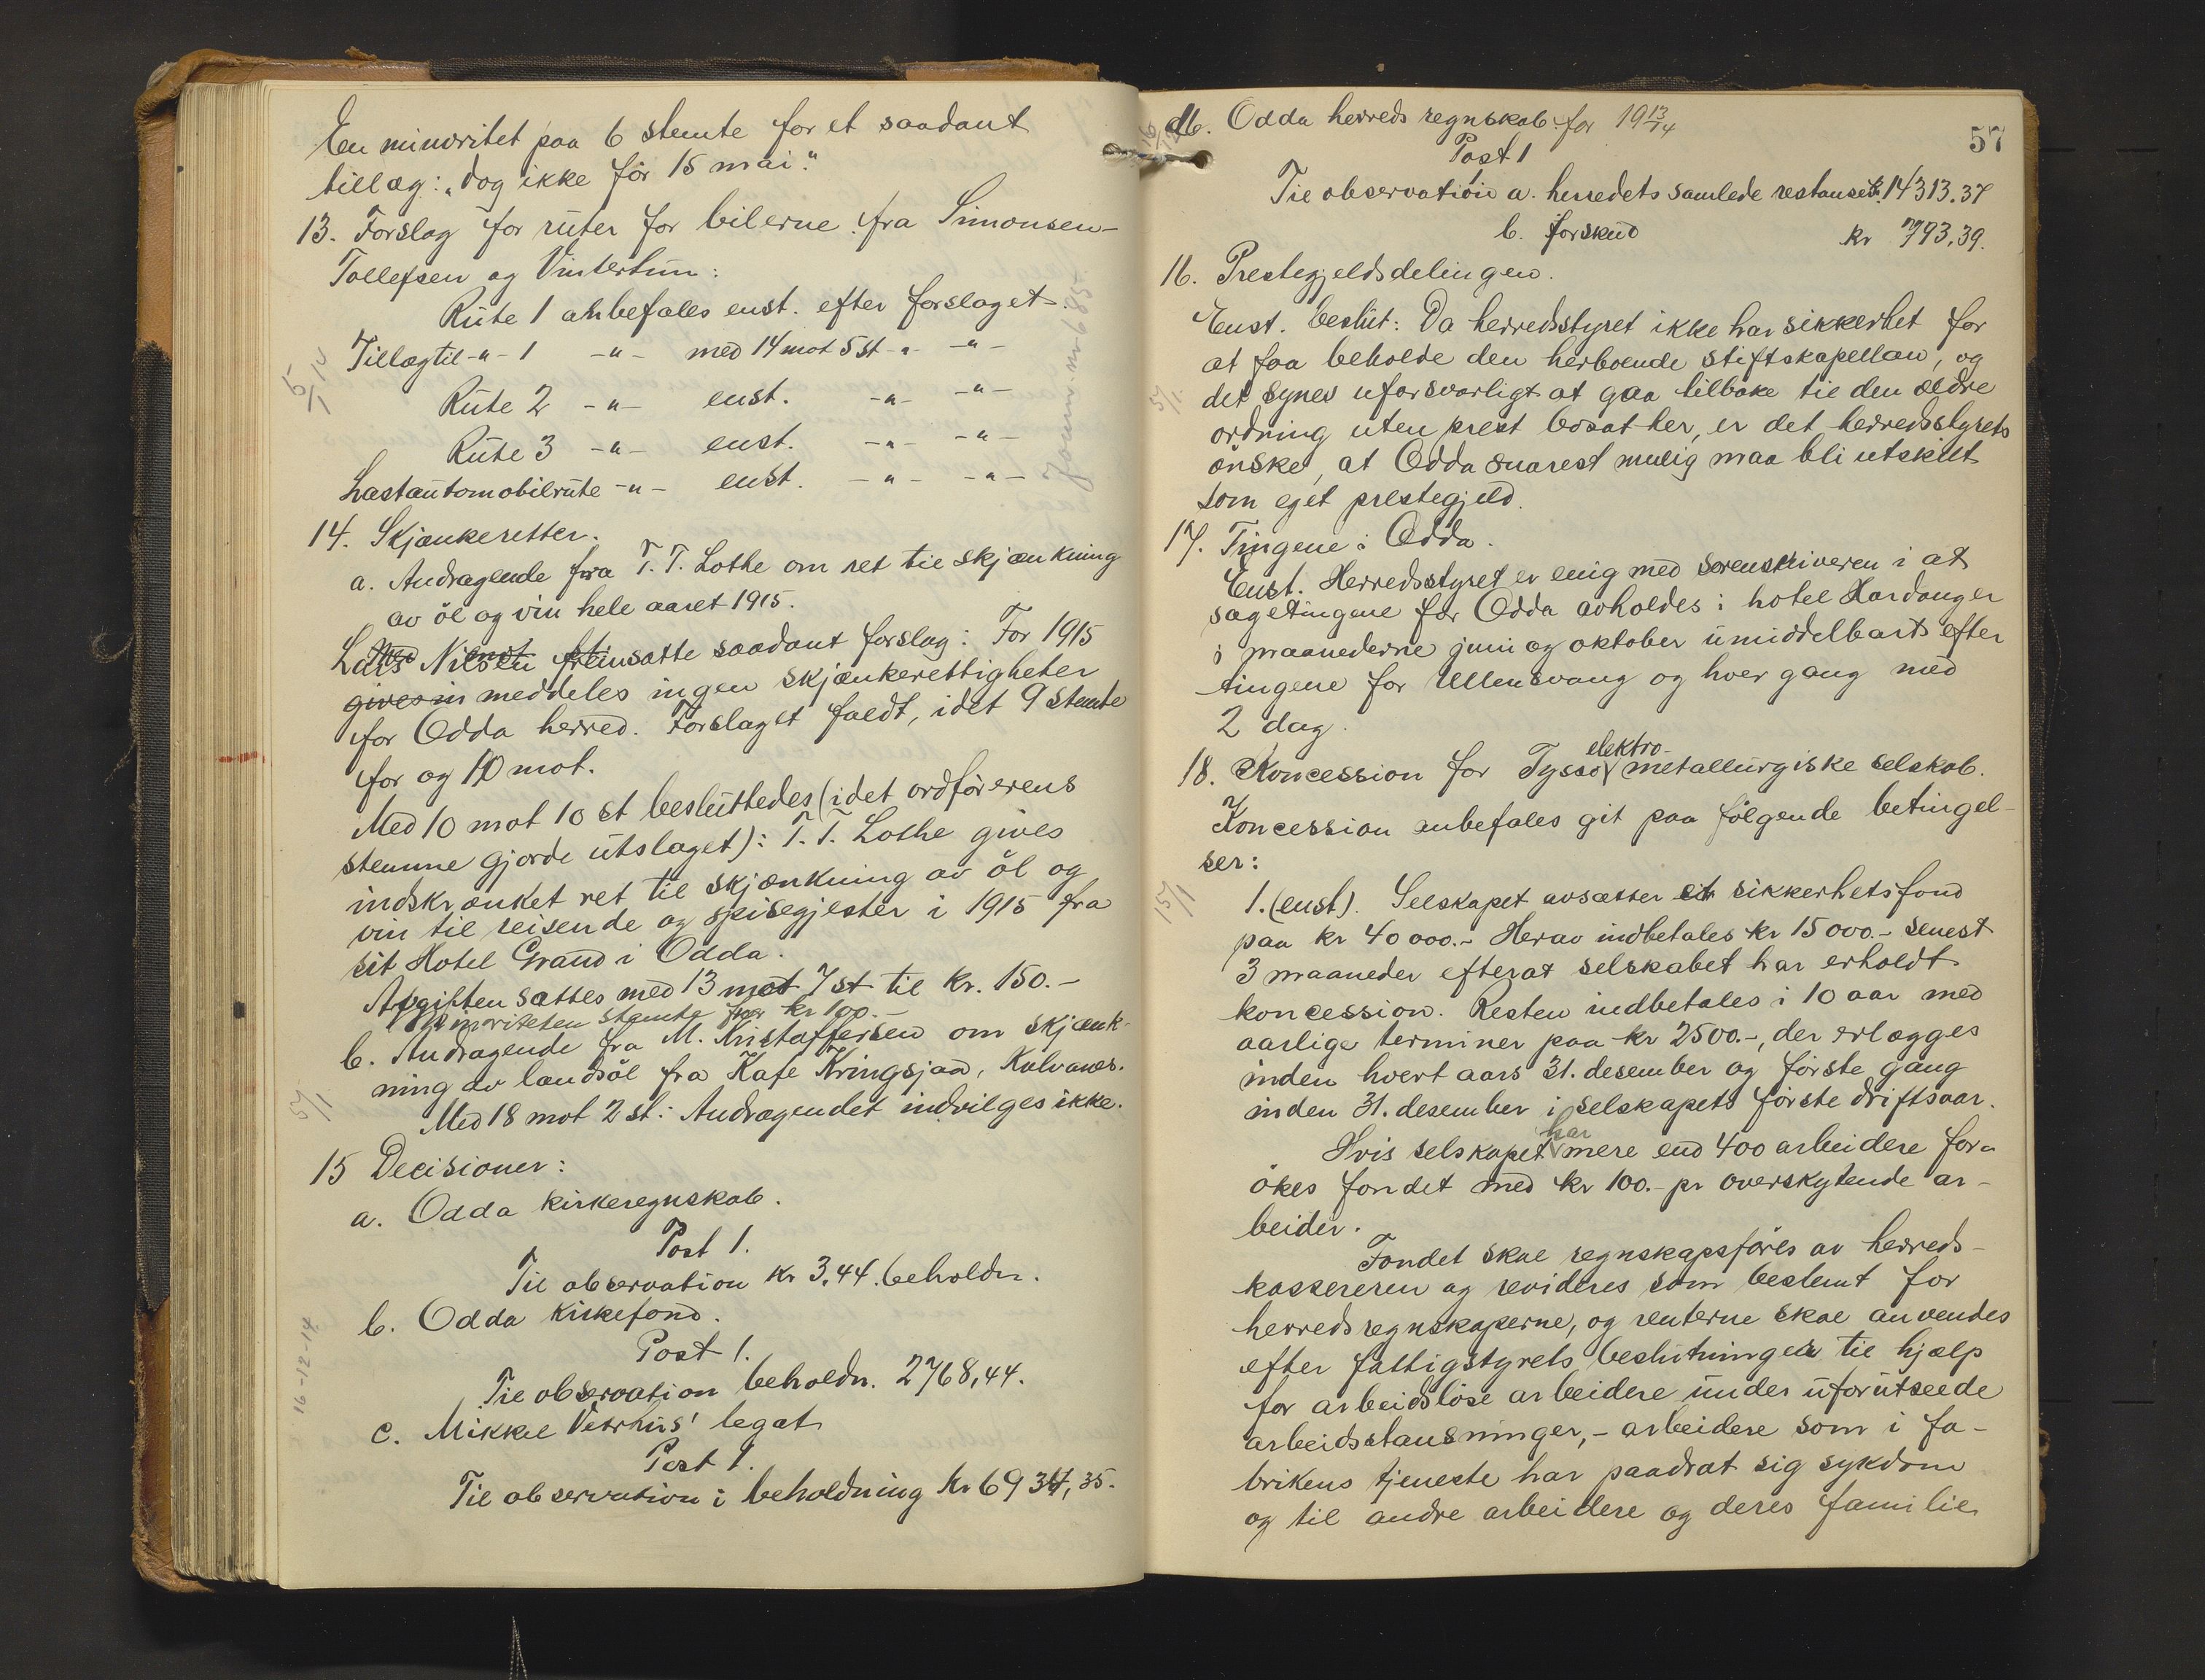 En minoritet paa 6 stemte for et saadant
tillæg: „dog ikke før 15 mai."
13. Forslag for ruter for bilerne fra Simonsen-
Tollefsen og Vintertun:
Rute 1 anbefales enst. efter forslaget.
Tillæg til -"- 1 -"- med 14 mot 5 st -"- -"-
5/1
Rute 2 -"- enst. -"- -"-
Rute 3 -"- enst. -"- -"-
Lastautomobilrute -"- enst. -"- -"-
Journ. nr 685
14. Skjænkeretter.
a. Andragende fra T. T. Lothe om ret til skjænkning
av öl og vin hele aaret 1915.
Lars Nilsen fremsatte saadant forslag: For 1915
gives in meddeles ingen skjænkerettigheter
for Odda herred. Forslaget faldt, idet 9 stemte
for og 10 mot.
Med 10 mot 10 st besluttedes (idet ordförerens
stemme gjorde utslaget): T. T. Lothe gives
indskrænket ret til skjænkning av öl og
vin til reisende og spisegjester i 1915 fra
sit Hotel Grand i Odda.
Avgiften sattes med 13 mot 7 st til kr. 150.-
Minoriteten stemte for kr 100.-
b. Andragende fra M. Kristoffersen om skjænk-
ning av landsöl fra Kafe Kringsjaa, Kalvanes.
5/1
Med 18 mot 2 st.: Andragendet indvilges ikke.
15 Decisioner:
a. Odda kirkeregnskab.
Post 1.
Til observation kr 3,44. beholdn.
b. Odda kirkefond.
16-12-14
Post 1.
Til observation beholdn. 2768,44.
c. Mikkel Vetrhus' legat
Post 1.
Til observation i beholdning kr 6934,35.
57
d. Odda herreds regnskab for 1913/14
Post 1
Til observation a. herredets samlede restanse kr. 14313.37
b. forskud kr 793,39.
16. Prestegjeldsdelingen.
Enst. beslut: Da herredsstyret ikke har sikkerhet for
at faa beholde den herboende stiftskapellan, og
5/1
det synes uforsvarligt at gaa tilbake til den ældre
ordning uten prest bosat her, er det herredsstyrets
önske, at Odda snarest mulig maa bli utskilt
som eget prestegjeld.
17. Tingene i Odda.
Enst. Herredsstyret er enig med sorenskriveren i at
sagetingene for Odda avholdes i hotel Hardanger
i maanederne juni og oktober umiddelbart efter
tingene for Ullensvang og hver gang med
2 dag.
18. Koncession for Tysso elektro-metallurgiske selskab.
Koncession anbefales git paa følgende betingel-
ser:
15/1
1. (enst). Selskapet avsætter et sikkerhetsfond
paa kr 40000.- Herav indbetales kr 15000.- senest
3 maaneder efterat selskabet har erholdt
koncession. Resten indbetales i 10 aar med
aarlige terminer paa kr 2500.-, der erlægges
inden hvert aars 31. desember og förste gang
inden 31. desember i selskapets förste driftsaar.
Hvis selskapet har mere end 400 arbeidere for-
ökes fondet med kr 100.- pr overskytende ar-
beider.
Fondet skal regnskapsföres av herreds-
kassereren og revideres som bestemt for
herredsregnskaperne, og renterne skal anvendes
efter fattigstyrets beslutninger til hjælp
for arbeidslöse arbeidere under uforutseede
arbeidsstansninger, - arbeidere som i fa-
brikens tjeneste har paadrat sig sykdom
og til andre arbeidere og deres familie